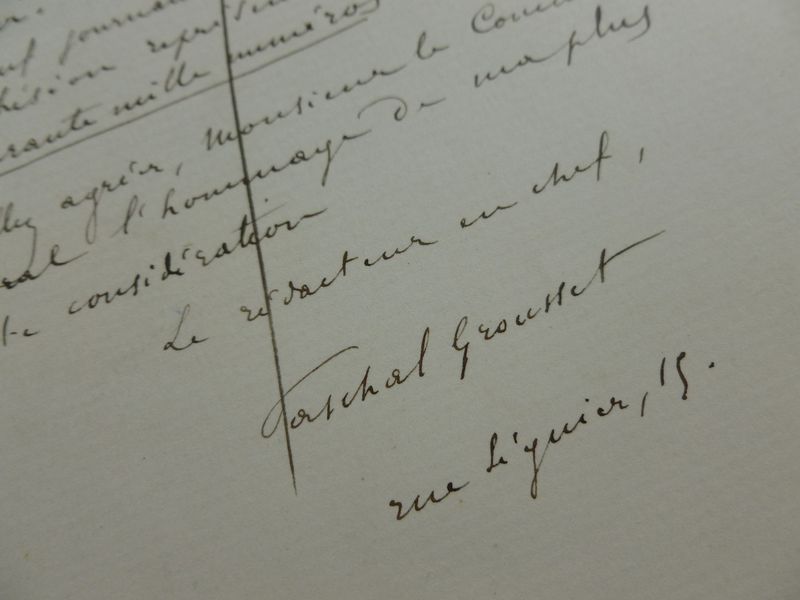 journa
représen
rante mille numéros
agréer, Monsieur le Com
l'hommage de ma plus
te considération
Le rédacteur en chef,
Paschal Grousset
rue Séguier, 15.